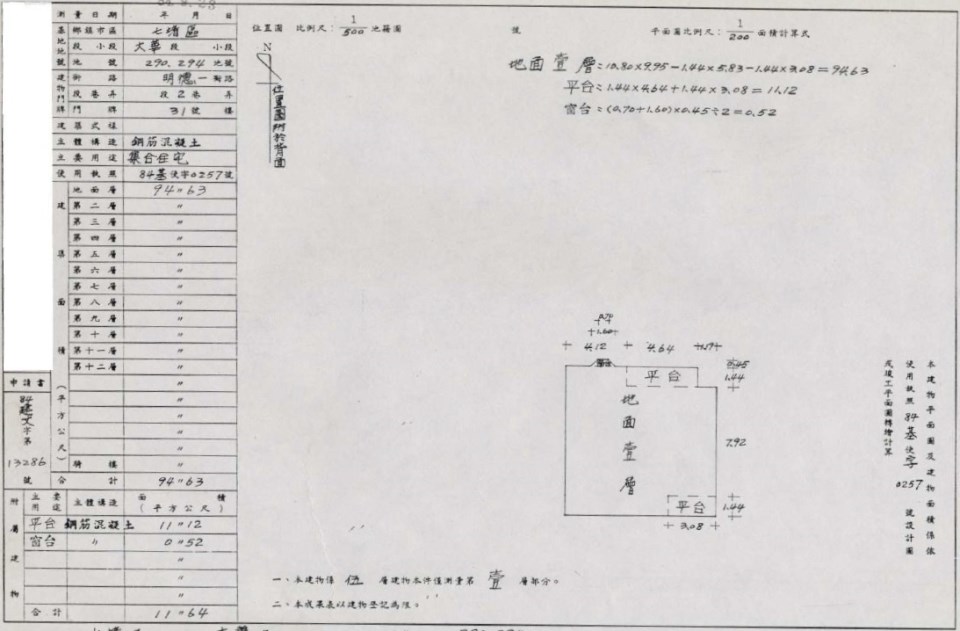 測量日期 年 月 日
基地地號 鄉鎮市區 七堵區
段 小段 大華 段 小段
地號 290.294 地號
建物門牌 街路 明德一 街路
段巷弄 段 2 巷 弄
門牌 31 號 樓
建築式樣
主體構造 鋼筋混凝土
主要用途 集合住宅
使用執照 84基使字0257號
建築面積(平方公尺)
地面層 94〃63
第二層 〃
第三層 〃
第四層 〃
第五層 〃
第六層 〃
第七層 〃
第八層 〃
第九層 〃
第十層 〃
第十一層 〃
第十二層 〃
〃
〃
〃
〃
〃
騎樓 〃
合計 94〃63
申請書
84
字第
13286
號
附屬建物
主要用途 主體構造 面積(平方公尺)
平台 鋼筋混凝土 11〃12
窗台 〃 0〃52
〃
〃
〃
合計 11〃64
位置圖 比例尺:1/500 地籍圖 號
N
位置圖附於背面
平面圖比例尺:1/200 面積計算式
地面壹層:10.80×9.95-1.44×5.83-1.44×3.08=94.63
平台:1.44×4.64+1.44×3.08=11.12
窗台:(0.70+1.60)×0.45÷2=0.52
0.70
1.60
4.12 4.64 1.19
0.45
平台 1.44
地面壹層
7.92
平台 1.44
3.08
本建物平面圖及建物面積係依
使用執照 84基使字0257 號設計圖
或竣工平面圖轉繪計算
一、本建物係 層建物本件僅測量第 壹 層部分。
二、本成果表以建物登記為限。